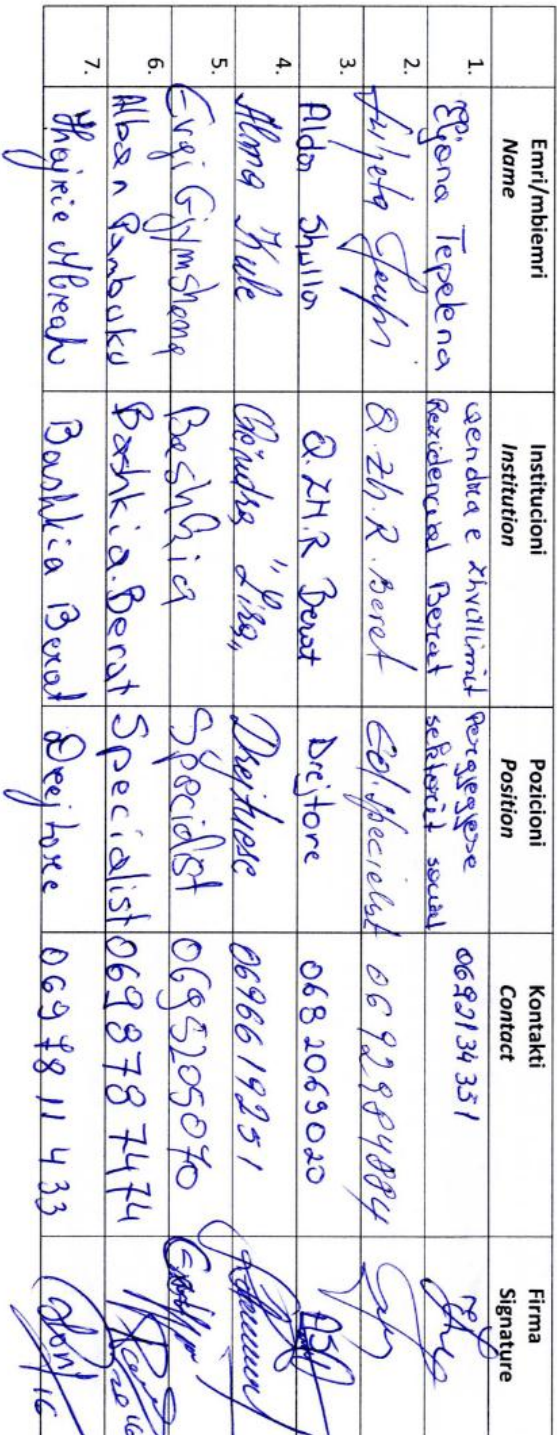 Emri/mbiemri Institucioni Pozicioni Kontakti Firma
Name Institution Position Contact Signature
1. Eljona Tepelena Qendra e Zhvillimit Rezidencial Berat Pergjegjese sektorit social 0692134351
2. Juljeta Q.Zh.R. Berat Specialist 0692984884
3. Alda Shulla Q.ZH.R Berat Drejtore 0682069020
4. Alma Kule Qendra "Lira" Drejtuese 0696619251
5. Evgji Gjymshana Bashkia Specialist 0695205070
6. Alban Pambuku Bashkia.Berat Specialist 0698787474
7. Hajrie Bashkia Berat Drejtore 0697811433